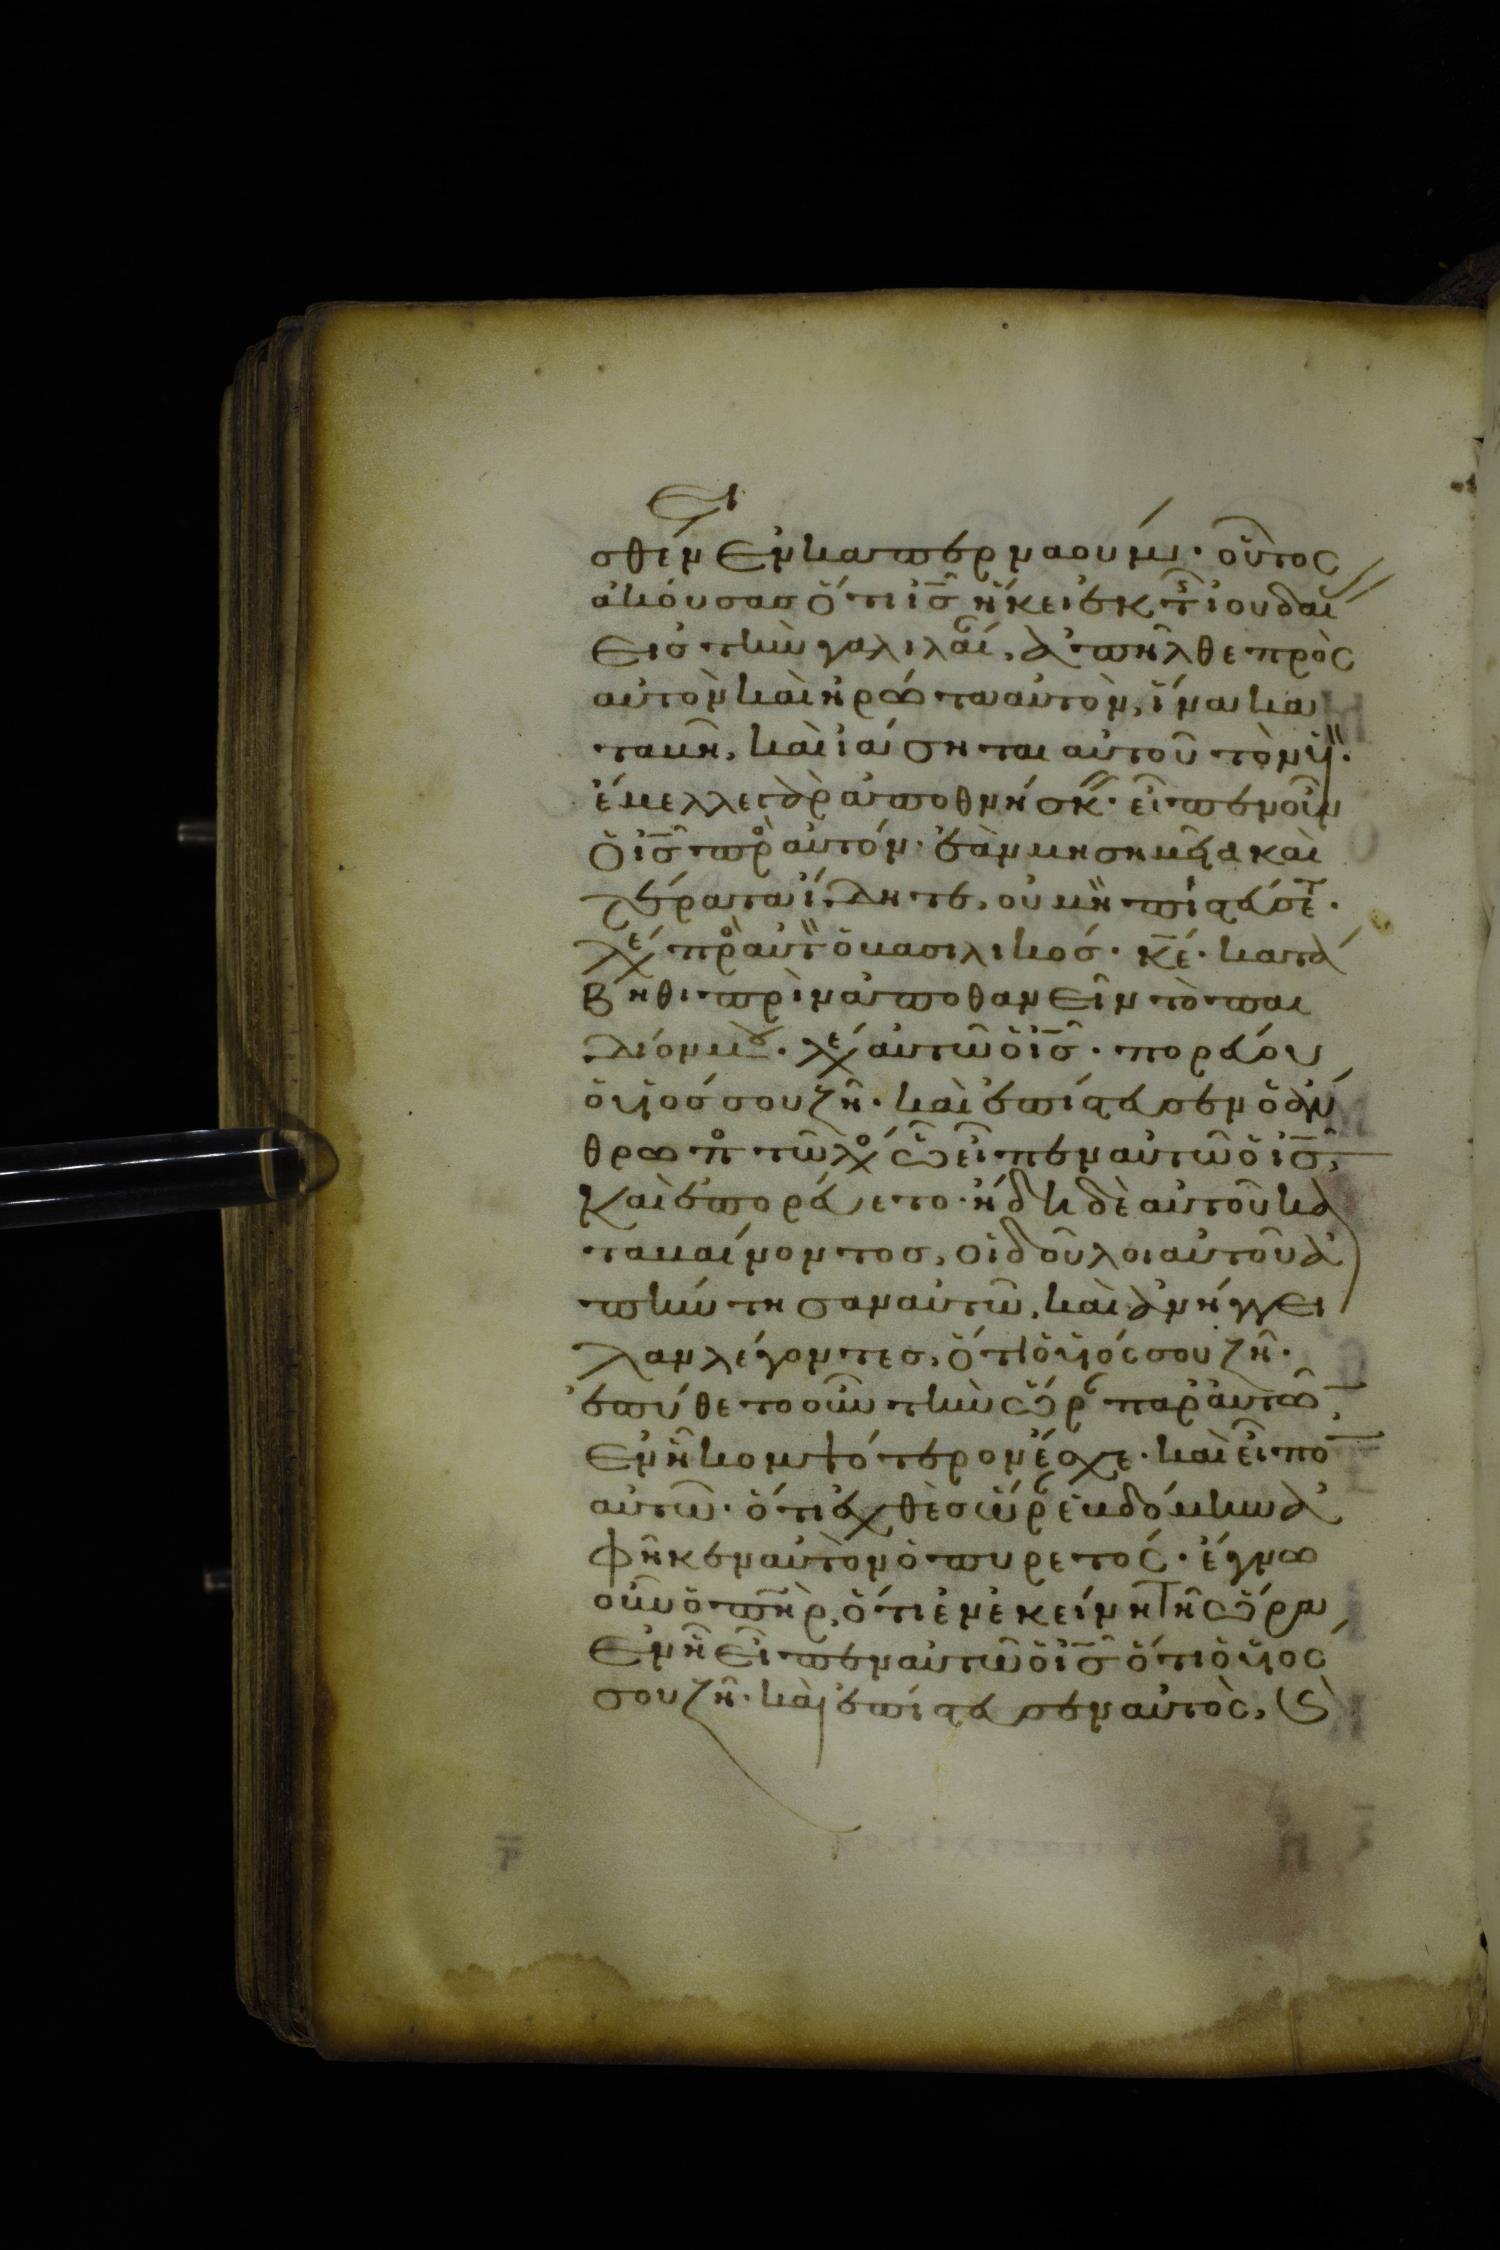 σθένει
ἐν καπερναούμ· οὗτος
ἀκούσας ὅτι ις ἥκει ἐκ τῆς ἰουδαί
εἰς τὴν γαλιλαί, ἀπῆλθε πρὸς
αὐτὸν καὶ ἠρώτα αὐτὸν, ἵνα κα
ταβῆ, καὶ ἰάσηται αὐτοῦ τὸν υν·
ἔμελλε γὰρ ἀποθνήσκειν· εἶπεν οὖν
ὁ ις πρὸς αὐτόν· ἐὰν μὴ σημεῖα καὶ
τέρατα ἴδητε, οὐ μὴ πιστεύσητε·
λέγει πρὸς αὐτὸν ὁ βασιλικός· κε· κατά
βηθι πρὶν ἀποθανεῖν τὸ παι
δίον μου· λέγει αὐτῶ ὁ ις· πορεύου
ὁ υἱός σου ζῆ· καὶ ἐπίστευσεν ὁ ἄν
θρωπος τῶ λόγω ὧ εἶπεν αὐτῶ ὁ ις,
καὶ ἐπορεύετο· ἤδη δὲ αὐτοῦ κα
ταβαίνοντος, οἱ δοῦλοι αὐτοῦ ἀ
πήντησαν αὐτῶ, καὶ ἀνήγγει
λαν λέγοντες, ὅτι ὁ υἱός σου ζῆ·
ἐπύθετο οὖν τὴν ὥραν παρ' αὐτῶν
ἐν ἧ κομψότερον ἔσχε· καὶ εἶπον
αὐτῶ· ὅτι ἐχθὲς ὥραν ἑβδόμην ἀ
φῆκεν αὐτὸν ὁ πυρετός· ἔγνω
οὖν ὁ πηρ, ὅτι ἐν ἐκείνη τῆ ὥρα
ἐν ἧ εἶπεν αὐτῶ ὁ ις ὅτι ὁ υἱός
σου ζῆ· καὶ ἐπίστευσεν αὐτὸς, καὶ